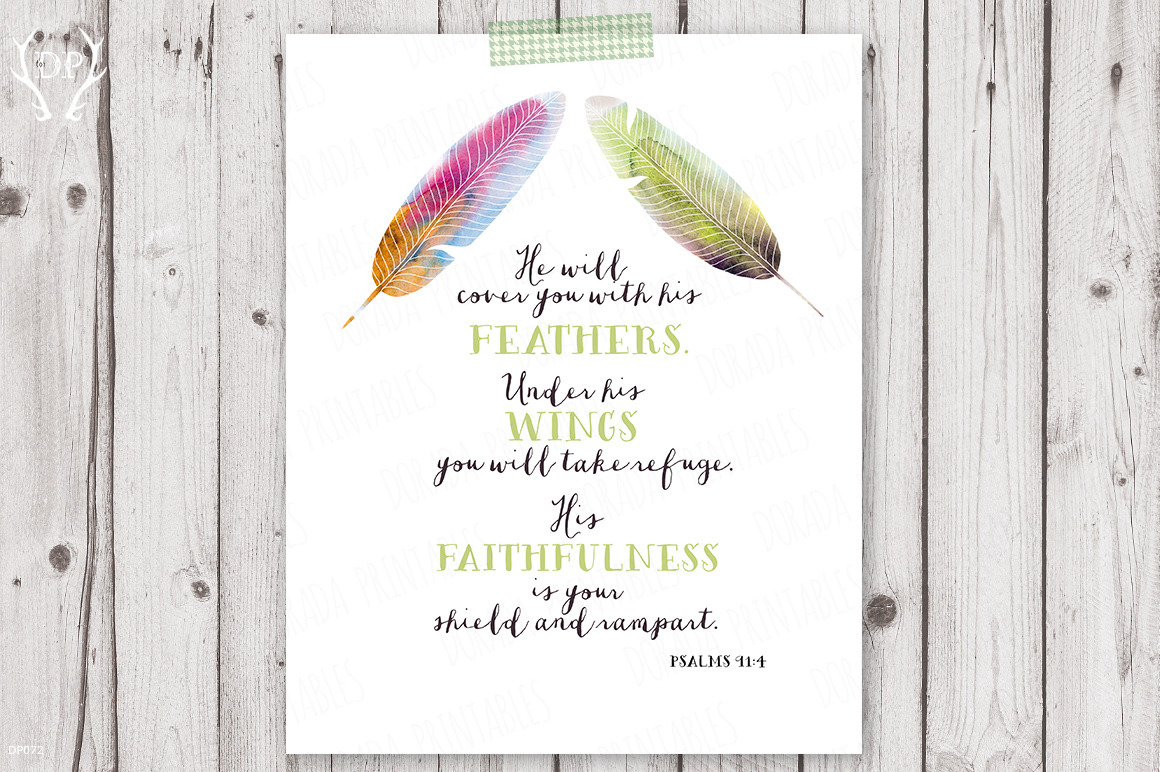 DP
DORADA PRINTABLES
He will
cover you with his
FEATHERS.
Under his
WINGS
you will take refuge.
His
FAITHFULNESS
is your
shield and rampart.
PSALMS 91:4
DP072